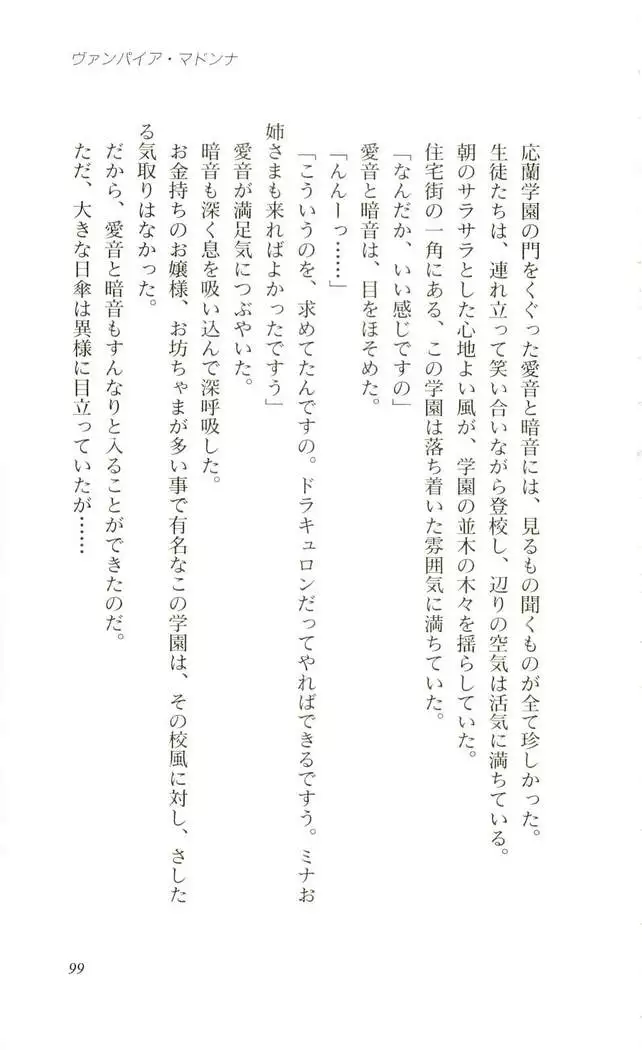 ヴァンパイア・マドンナ
応蘭学園の門をくぐった愛音と暗音には、見るもの聞くものが全て珍しかった。
生徒たちは、連れ立って笑い合いながら登校し、辺りの空気は活気に満ちている。
朝のサラサラとした心地よい風が、学園の並木の木々を揺らしていた。
住宅街の一角にある、この学園は落ち着いた雰囲気に満ちていた。
「なんだか、いい感じですの」
愛音と暗音は、目をほそめた。
「んんーっ……」
「こういうのを、求めてたんですの。ドラキュロンだってやればできるですう。ミナお
姉さまも来ればよかったですう」
愛音が満足気につぶやいた。
暗音も深く息を吸い込んで深呼吸した。
お金持ちのお嬢様、お坊ちゃまが多い事で有名なこの学園は、その校風に対し、さした
る気取りはなかった。
だから、愛音と暗音もすんなりと入ることができたのだ。
ただ、大きな日傘は異様に目立っていたが……
99